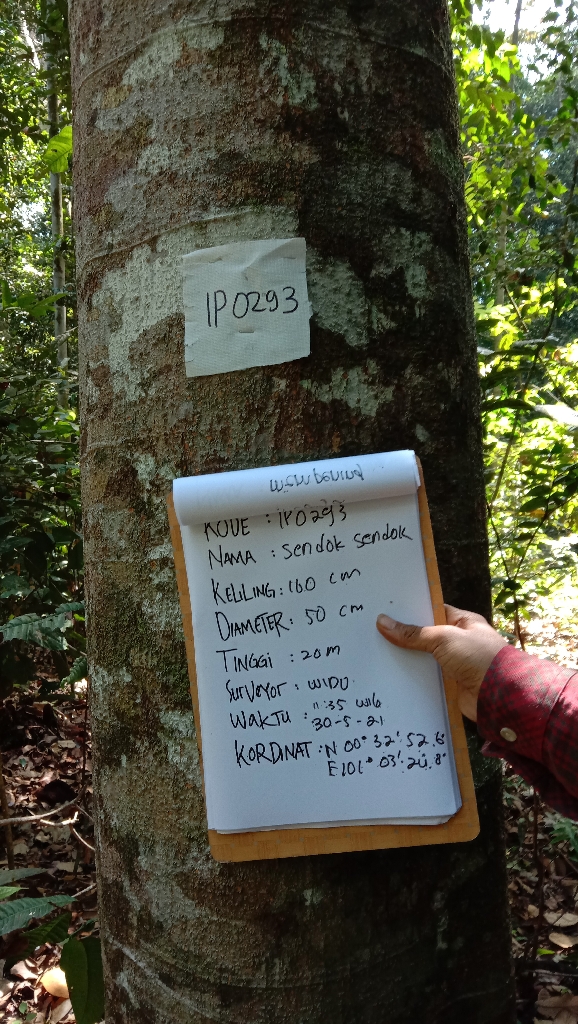 IP0293
KODE : IP0293
NAMA : Sendok Sendok
KELILING : 160 cm
DIAMETER : 50 cm
TINGGI : 20 m
Surveyor : WIDU
WAKTU : 11:35 WIB
30-5-21
KORDINAT : N 00° 32' 52.6"
E 101° 03' 20.8"